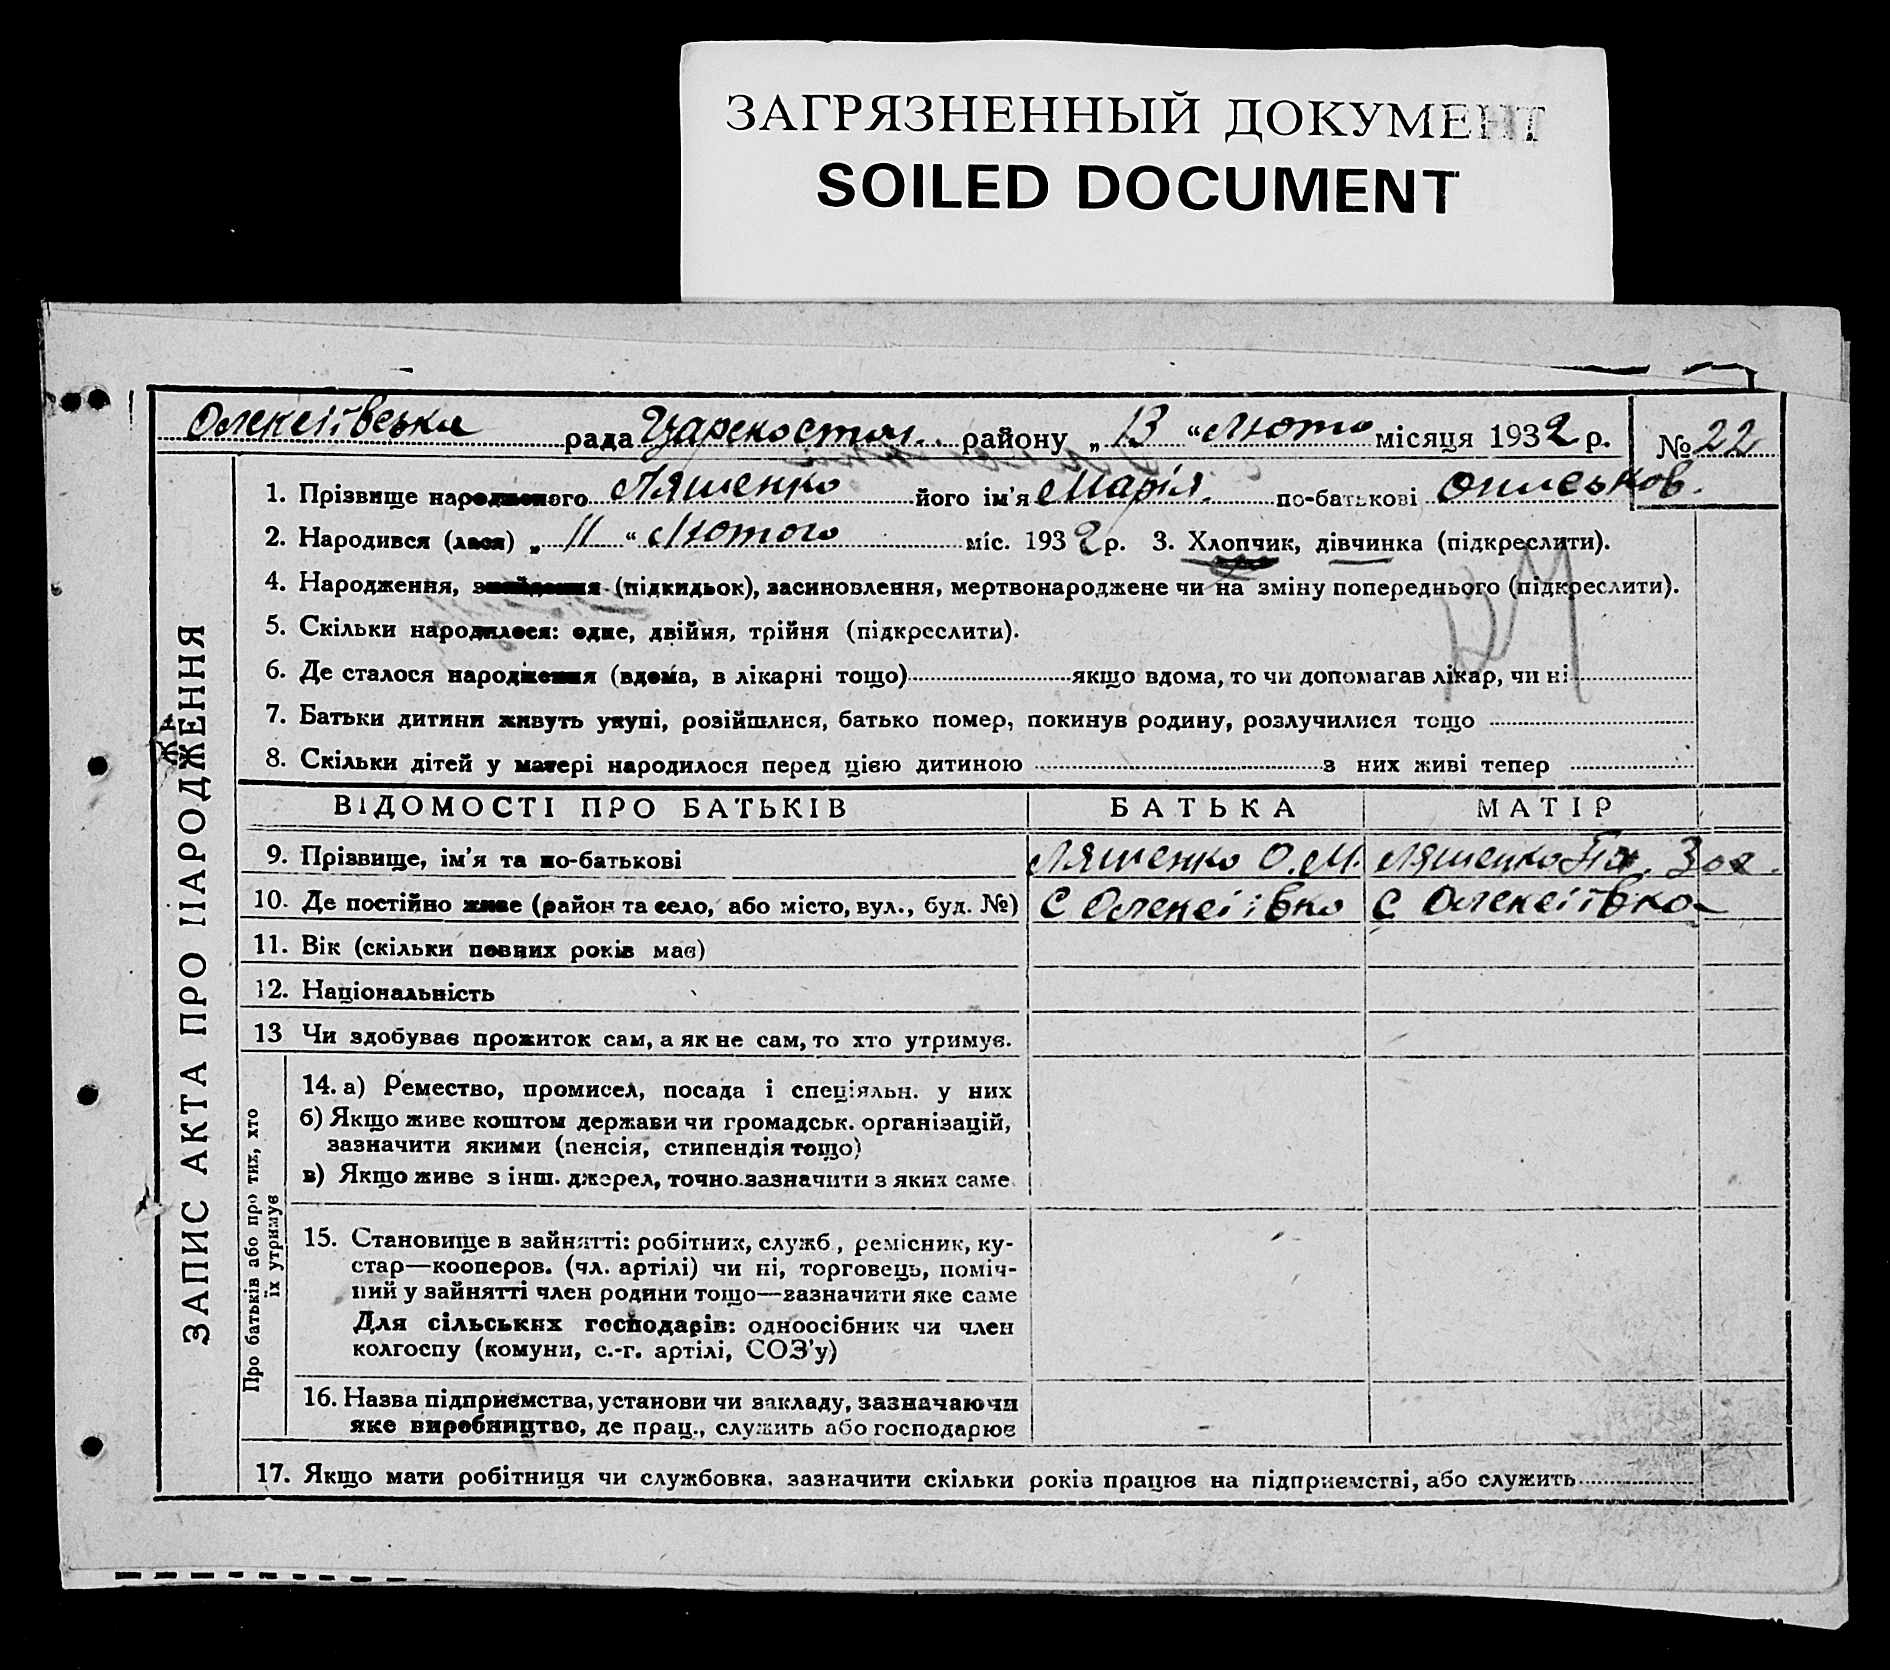 ЗАГРЯЗНЕННЫЙ ДОКУМЕНТ
SOILED DOCUMENT
Олексіївська рада район у „13“ Люто місяця 1932 р. № 22
1. Прізвище народженого Ляшенко його ім’я Марія по-батькові
2. Народився (лася) „11“ Лютого міс. 1932 р. 3. Хлопчик, дівчинка (підкреслити).
4. Народження, знайдення (підкидьок), засиновлення, мертвонароджене чи на зміну попереднього (підкреслити).
5. Скільки народилося: одне, двійня, трійня (підкреслити).
6. Де сталося народження (вдома, в лікарні тощо) якщо вдома, то чи допомагав лікар, чи ні
7. Батьки дитини живуть укупі, розійшлися, батько помер, покинув родину, розлучилися тощо
8. Скільки дітей у матері народилося перед цією дитиною з них живі тепер
ЗАПИС АКТА ПРО НАРОДЖЕННЯ
ВІДОМОСТІ ПРО БАТЬКІВ БАТЬКА МАТІР
9. Прізвище, ім’я та по-батькові Ляшенко О.М. Ляшенко
10. Де постійно живе (район та село, або місто, вул., буд. №) С Олексіївко С Олексіївко
11. Вік (скільки повних років має)
12. Національність
13 Чи здобуває прожиток сам, а як не сам, то хто утримує.
Про батьків або про тих, хто
їх утримує
14. а) Ремество, промисел, посада і спеціяльн. у них
б) Якщо живе коштом держави чи громадськ. організацій,
зазначити якими (пенсія, стипендія тощо)
в) Якщо живе з інш. джерел, точно зазначити з яких саме
15. Становище в зайнятті: робітник, служб., ремісник, ку-
стар—кооперов. (чл. артілі) чи ні, торговець, поміч-
ний у зайнятті член родини тощо—зазначити яке саме
Для сільських господарів: одноосібник чи член
колгоспу (комуни, с.-г. артілі, СОЗ’у)
16. Назва підприємства, установи чи закладу, зазначаючи
яке виробництво, де прац., служить або господарює
17. Якщо мати робітниця чи службовка, зазначити скільки років працює на підприємстві, або служить